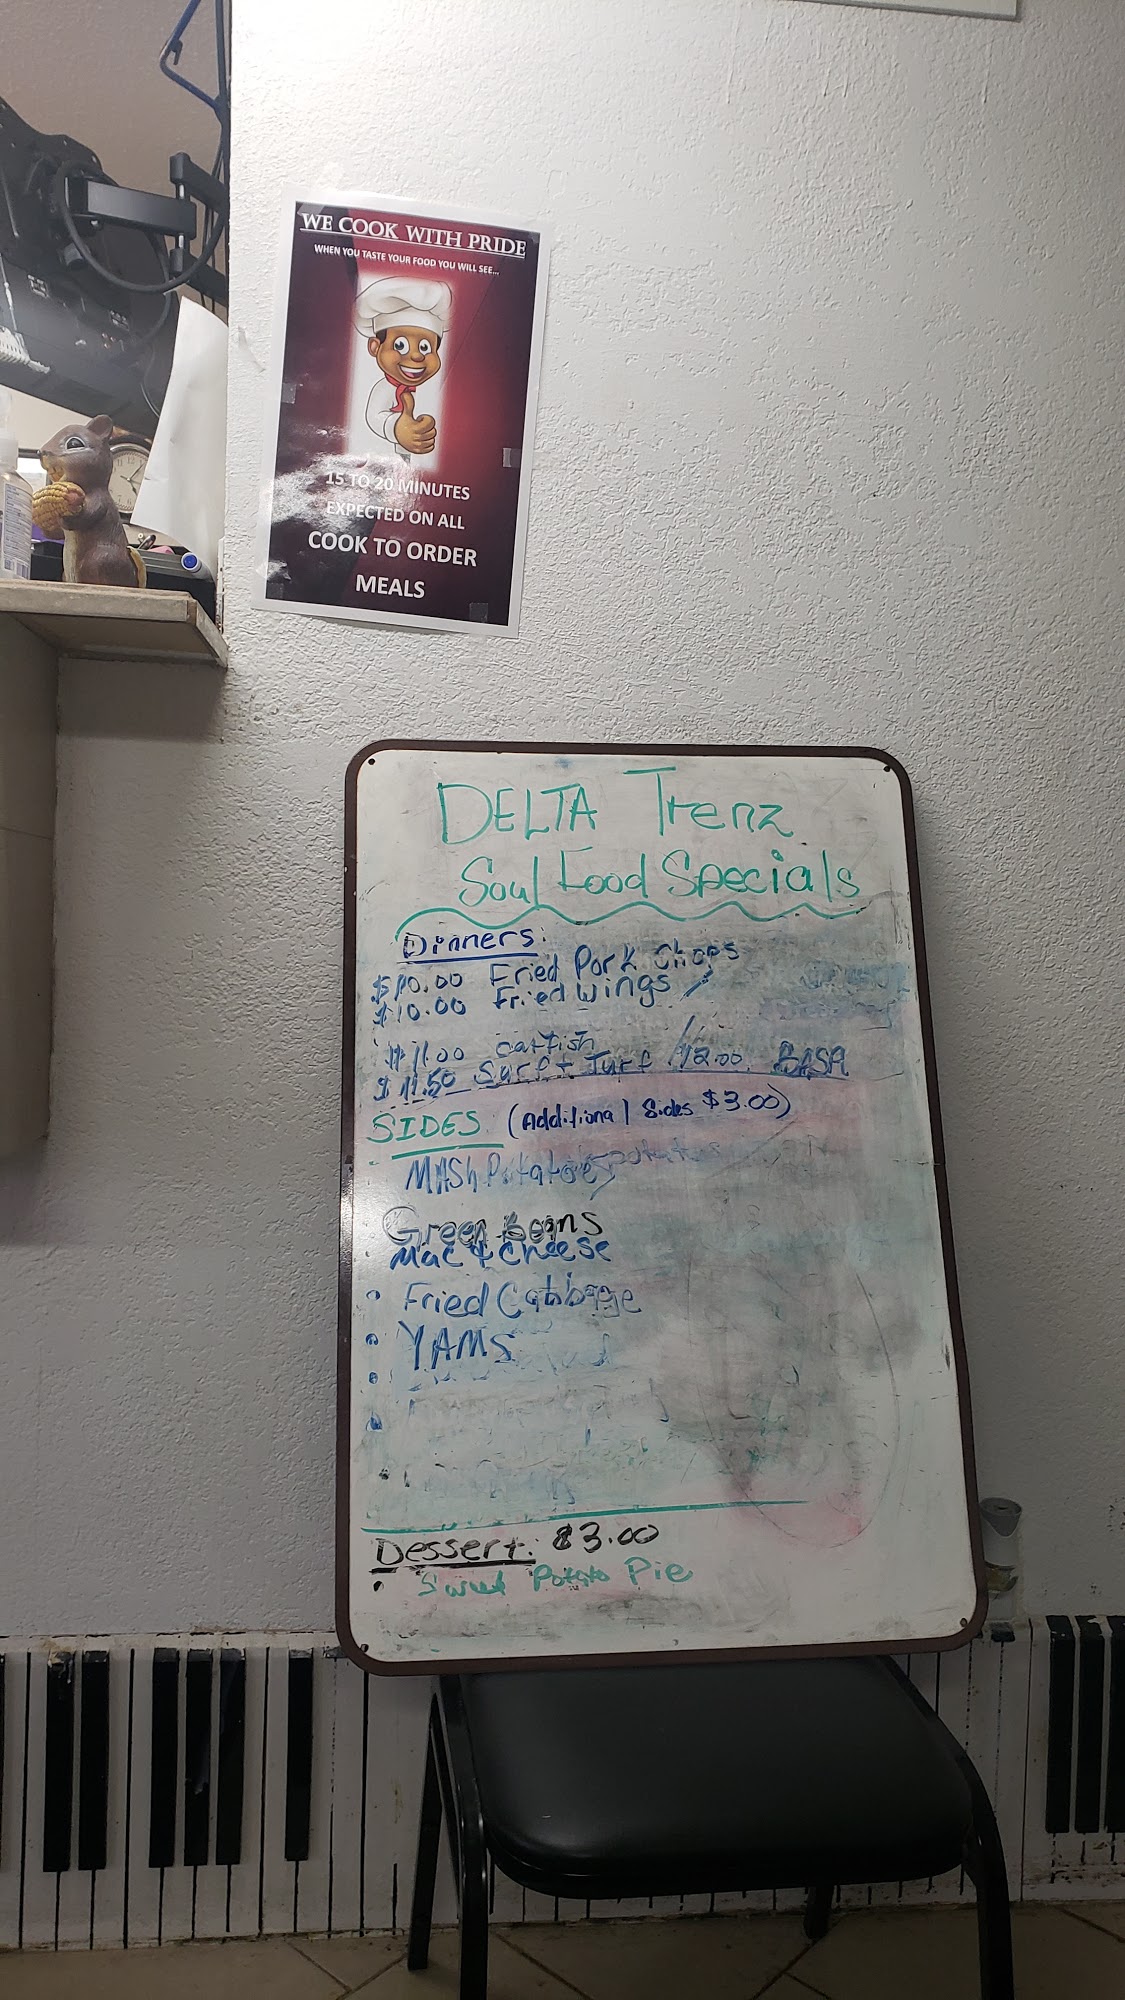 WE COOK WITH PRIDE
WHEN YOU TASTE YOUR FOOD YOU WILL SEE...
15 TO 20 MINUTES
EXPECTED ON ALL
COOK TO ORDER
MEALS
DELTA Trenz
Soul Food Specials
Dinners:
$10.00 Fried Pork Chops
$10.00 Fried Wings
$11.00 catfish
$11.50 Surf + Turf /12.00 BASA
SIDES (Additional Sides $3.00)
MASh Potatoes
Green Beans
Mac & Cheese
Fried Cabbage
YAMS
Dessert: $3.00
Sweet Potato Pie